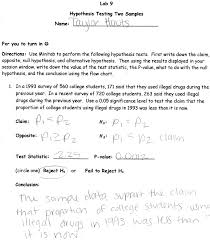 Lab 9
Hypothesis Testing Two Samples
Name: Taylor Hauts
For you to turn in
Directions: Use Minitab to perform the following hypothesis tests. First write down the claim,
opposite, null hypothesis, and alternative hypothesis. Then using the results displayed in your
session window, write down the value of the test statistic, the P-value, what to do with the null
hypothesis, and the conclusion using the flow chart.
1. In a 1993 survey of 560 college students, 171 said that they used illegal drugs during the
previous year. In a recent survey of 720 college students, 263 said that they used illegal
drugs during the previous year. Use a 0.05 significance level to test the claim that the
proportion of college students using illegal drugs in 1993 was less than it is now.
Claim: P₁ < P₂
Opposite: P₁ ≥ P₂
Test Statistic:
P-value: 0.012
(circle one) Reject H₀ / Fail to Reject H₀
Conclusion:
The sample data support the claim
that proportion of college students using
illegal drugs in 1993 was less than
it is now